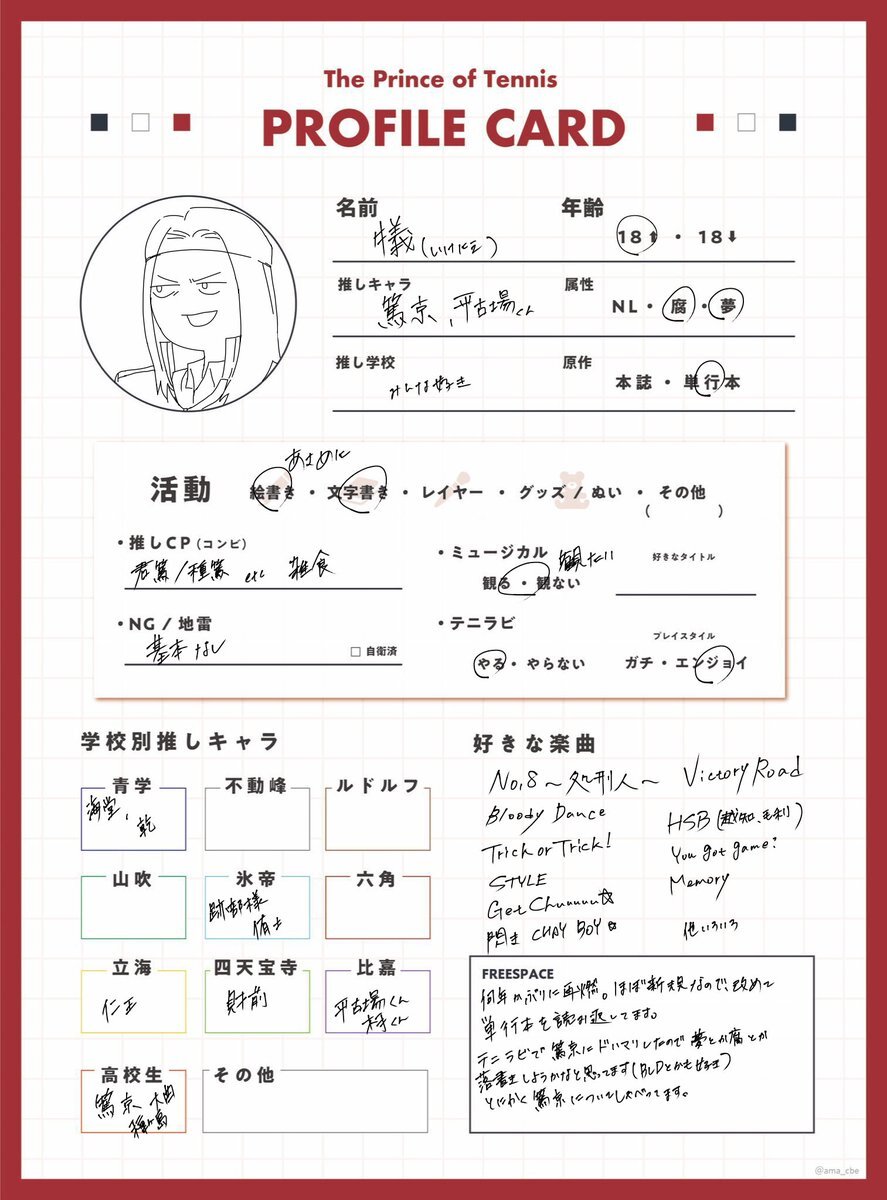 The Prince of Tennis
PROFILE CARD
名前
犠(いけにえ)
年齢
18⬆ ・ 18⬇
推しキャラ
篤京、平古場くん
属性
NL・腐・夢
推し学校
みんな好き
原作
本誌・単行本
あまめに
活動 絵書き・文字書き・レイヤー・グッズ/ぬい・その他
( )
・推しCP(コンビ)
君篤/種篤 etc 雑食
・ミュージカル 観たい
観る・観ない
好きなタイトル
・NG/地雷
基本なし
□ 自衛済
・テニラビ
やる・やらない
プレイスタイル
ガチ・エンジョイ
学校別推しキャラ
青学
海堂、
乾
不動峰
ルドルフ
山吹
氷帝
跡部様
侑士
六角
立海
仁王
四天宝寺
財前
比嘉
平古場くん
木手くん
高校生
篤京、大曲
種ヶ島
その他
好きな楽曲
No,8~処刑人~ Victory Road
Bloody Dance
HSB(越知、毛利)
Trick or Trick!
You got game?
STYLE
Memory
Get Chuuuuu☆
閃き CHAY BOY☆
他いろいろ
FREESPACE
何年かぶりに再燃。ほぼ新規なので改めて
単行本を読み返してます。
テニラビで篤京にドハマりしたので夢とか腐とか
落書きしようかなと思ってます(BLDとかも好き)
とにかく篤京についてしゃべってます。
@ama_cbe